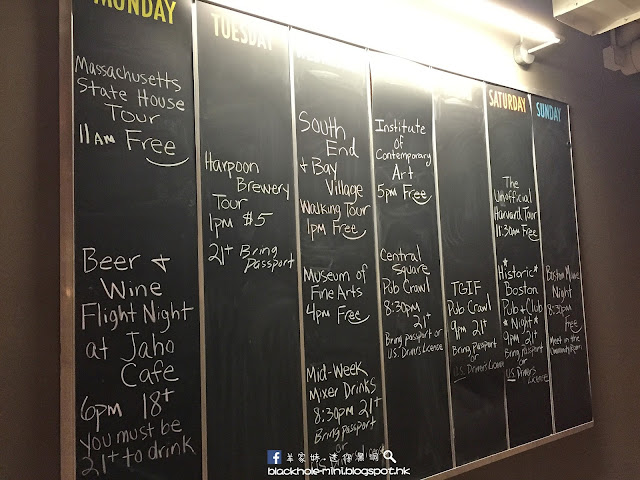 MONDAY
Massachusetts
State House
Tour
11AM Free
Beer +
Wine
Flight Night
at Jaho
Cafe
6pm 18+
you must be
21+ to drink
TUESDAY
Harpoon
Brewery
Tour
1pm $5
21+ Bring
Passport
South
End
+ Bay
Village
Walking Tour
1pm Free
Museum of
Fine Arts
4pm Free
Mid-Week
Mixer Drinks
8:30pm 21+
Bring Passport
or
Institute
of
Contemporary
Art
5pm Free
Central
Square
Pub Crawl
8:30pm
21+
Bring passport or
U.S. Driver's License
TGIF
Pub Crawl
9pm 21+
Bring Passport
or
U.S. Drivers License
SATURDAY
The
Unofficial
Harvard Tour
11:30am Free
*Historic*
Boston
Pub + Club
*Night*
9pm 21+
Bring Passport
or
U.S. Drivers
License
SUNDAY
Boston Movie
Night
8:30pm
Free
Meet in the
Community Room
blackhole-mini.blogspot.hk